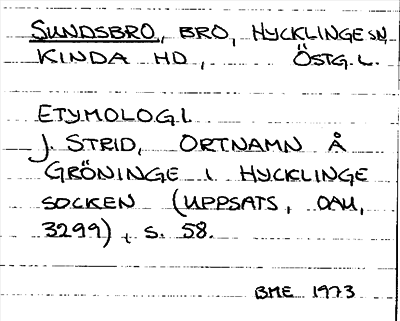 SUNDSBRO, BRO, HYCKLINGE SN,
KINDA HD, ÖSTG. L.
ETYMOLOGI.
J. STRID, ORTNAMN Å
GRÖNINGE I HYCKLINGE
SOCKEN (UPPSATS, OAU,
3299), S. 58.
BME 1973